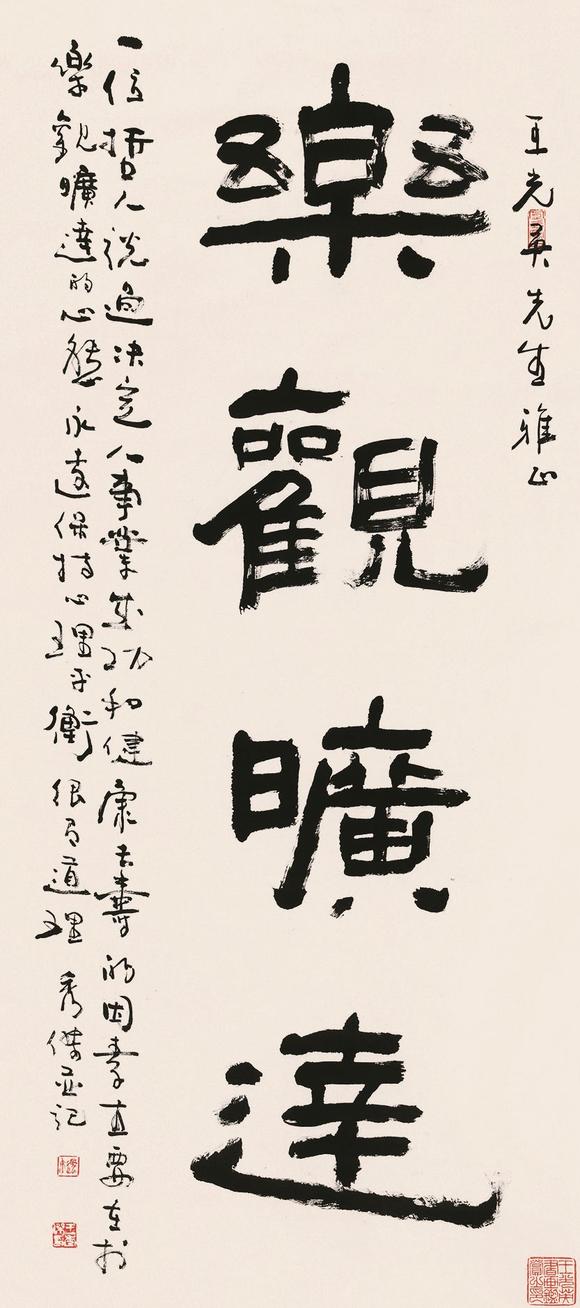 王光英先生雅正
樂觀曠達
一位哲人說過决定人事業成功和健康長壽的因素主要在於
樂觀曠達的心態永遠保持心理平衡很有道理 秀傑並記